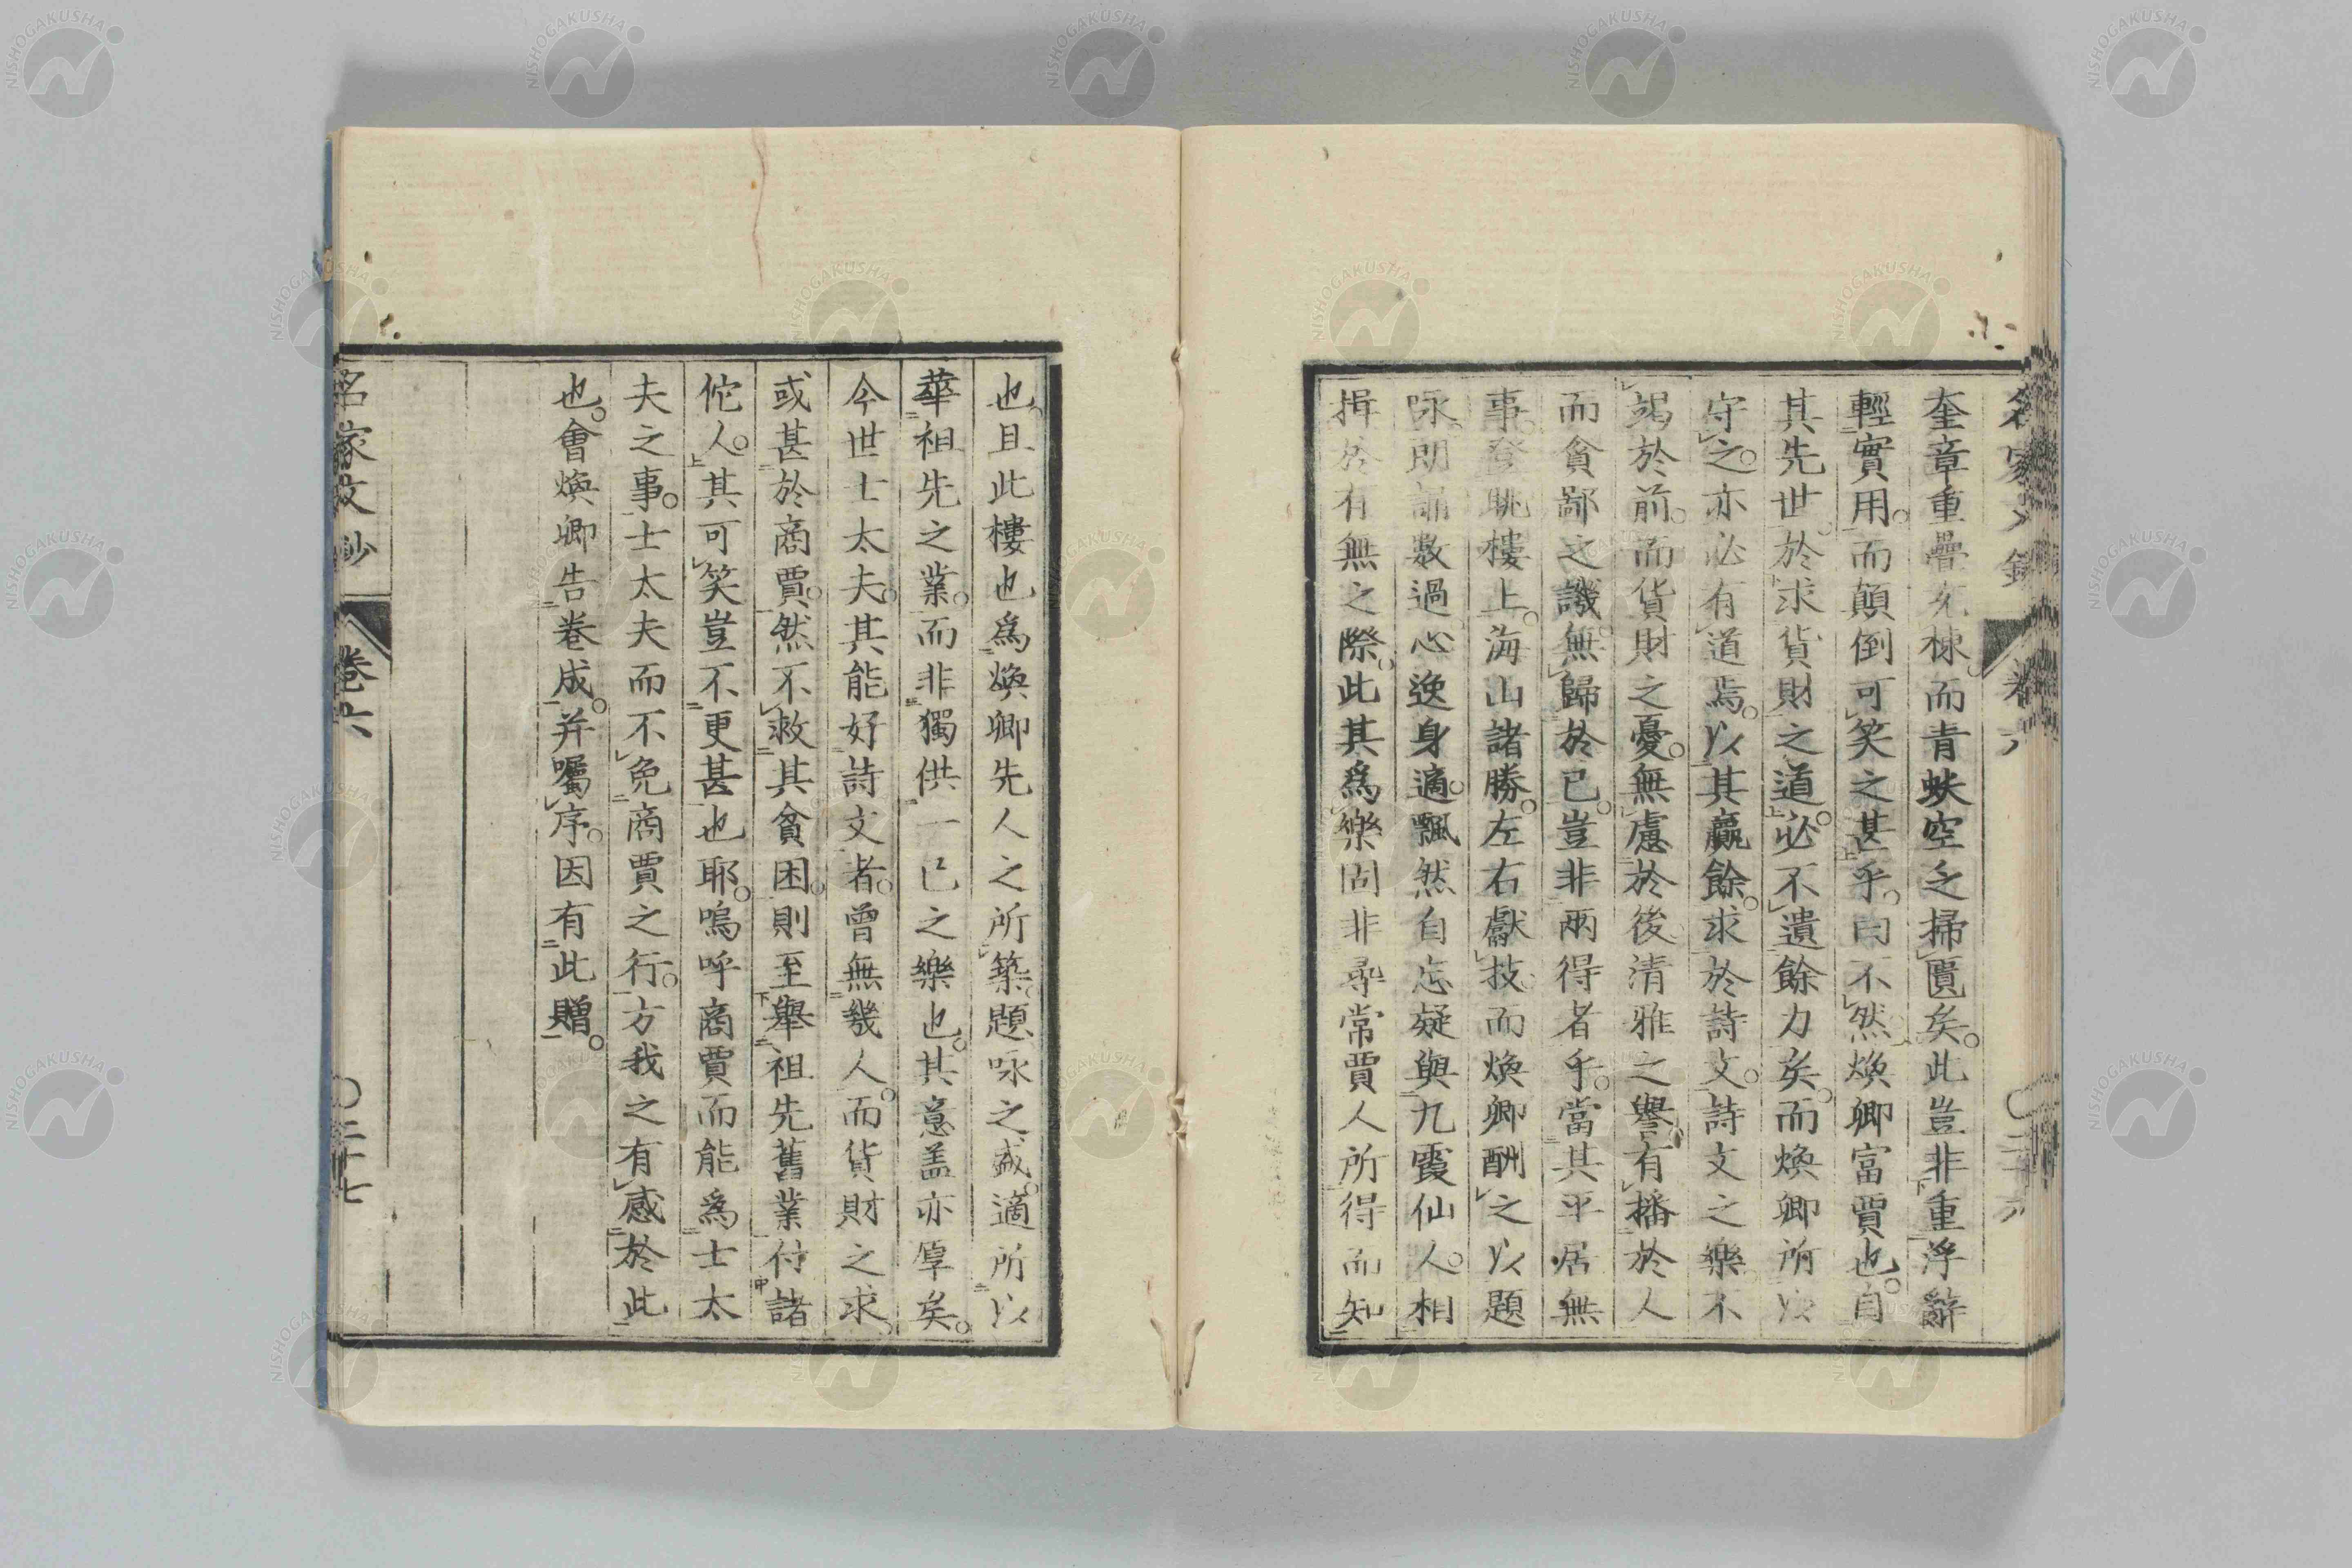 奎章重疊充棟。而青蚨空乏掃匱矣。此豈非重浮辭
輕實用。而顛倒可笑之甚乎。曰不然煥卿富賈也。自
其先世。於求貨財之道。必不遺餘力矣。而煥卿所以
守之。亦必有道焉。以其贏餘。求於詩文。詩文之樂不
竭於前。而貨財之憂。無慮於後。清雅之譽。有播於人
而貪鄙之譏。無歸於己。豈非兩得者乎。當其平居無
事。登眺樓上。海山諸勝。左右獻技。而煥卿酬之以題
咏。朗誦數過。心逸身適。飄然自忘。疑與九霞仙人。相
揖於有無之際。此其爲樂固非尋常賈人所得而知
也。且此樓也爲煥卿先人之所築。題咏之盛。適所以
華祖先之業。而非獨供一己之樂也。其意盖亦厚矣。
今世士太夫。其能好詩文者。曾無幾人。而貨財之求。
或甚於商賈。然不救其貧困。則至舉祖先舊業付諸
佗人。其可笑豈不更甚也耶。嗚呼商賈而能爲士太
夫之事。士太夫而不免商賈之行。方我之有感於此
也。會煥卿告卷成。并囑序。因有此贈。
名家文鈔
卷六
〇二十七
NISHOGAKUSHA